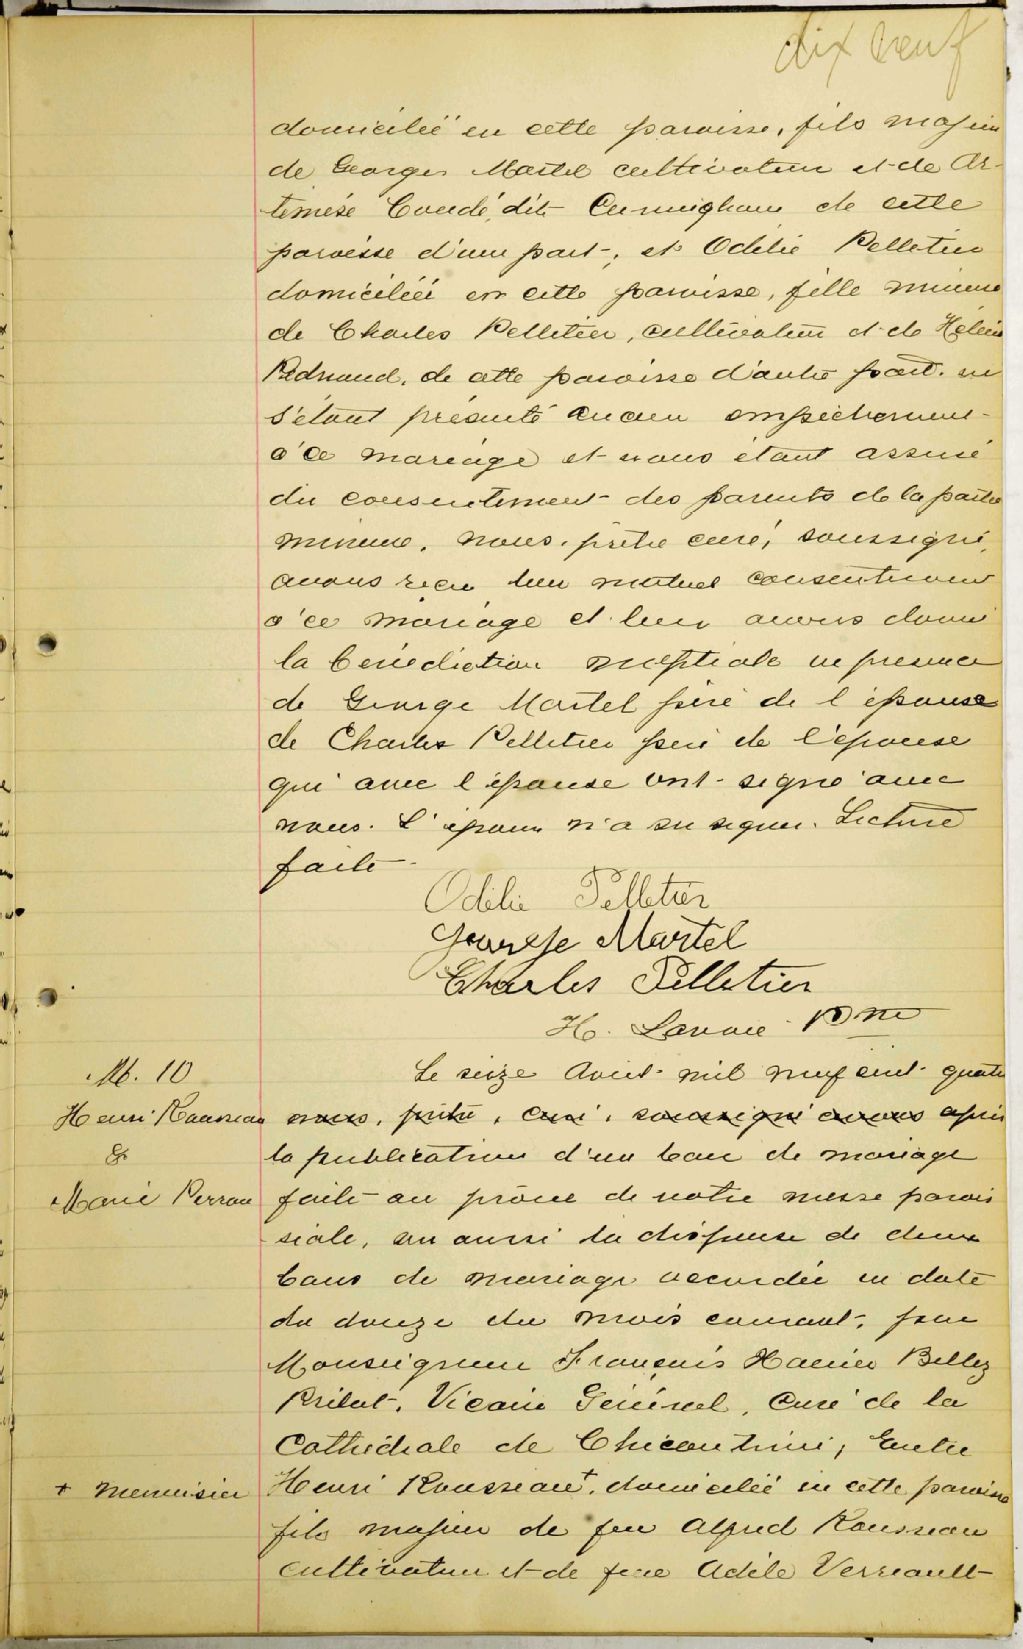 dix neuf
domicilié en cette paroisse, fils majeur
de Georges Martel cultivateur et de Ar-
temése Coudé, dit Cunnigham de cette
paroisse d'une part, et Odélie Pelletier
domiciliée en cette paroisse, fille mineure
de Charles Pelletier, cultivateur et de Hélène
de cette paroisse d'autre part. ne
s'étant présenté aucun empêchement
à ce mariage et nous étant assuré
du consentement des parents de la partie
mineure, nous, prêtre curé, soussigné,
avons reçu leur mutuel consentement
à ce mariage et leur avons donné
la bénédiction nuptiale en présence
de George Martel père de l'épouse
de Charles Pelletier père de l'épouse
qui avec l'épouse ont signé avec
nous. L'époux n'a su signer. Lecture
faite
Odélie Pelletier
George Martel
Charles Pelletier
H. Lavoie Ptre
M. 10
Henri Rousseau
&
Marie Perron
Le seize Avril mil neuf cent quatre
nous, prêtre, curé, soussigné avons après
la publication d'un ban de mariage
faite au prône de notre messe parois
siale, vu aussi la dispense de deux
bans de mariage accordée en date
du douze du mois courant, par
Monseigneur François Xavier Belley
Prélat, Vicaire Général, Curé de la
Cathédrale de Chicoutimi, Entre
+ menuisier
Henri Rousseau+, domicilié en cette paroisse
fils majeur de feu Alfred Rousseau
cultivateur et de feue Adèle Verreault